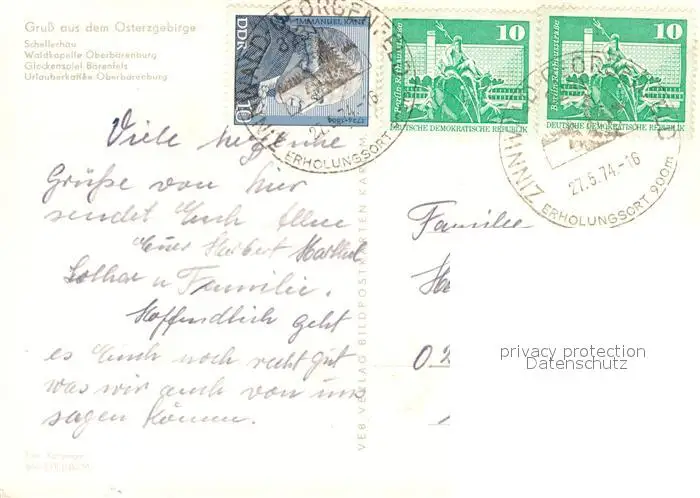 Gruß aus dem Osterzgebirge
Schellerhau
Waldkapelle Oberbärenburg
Glockenspiel Bärenfels
Oberbärenburg
DDR
IMMANUEL KANT
1724-1804
10
Berlin · Rathausstraße
10
DEUTSCHE DEMOKRATISCHE REPUBLIK
Berlin · Rathausstraße
10
DEUTSCHE DEMOKRATISCHE REPUBLIK
ERHOLUNGSORT
27.5.74.-16
ERHOLUNGSORT 900m
Viele herzliche
Grüße von hier
sendet Euch Allen
Euer Herbert
Lothar u Familie.
Hoffendlich geht
es Euch noch recht gut
was wir auch von uns
sagen können.
VEB VERLAG BILDPOSTKARTEN
Familie
privacy protection
Datenschutz